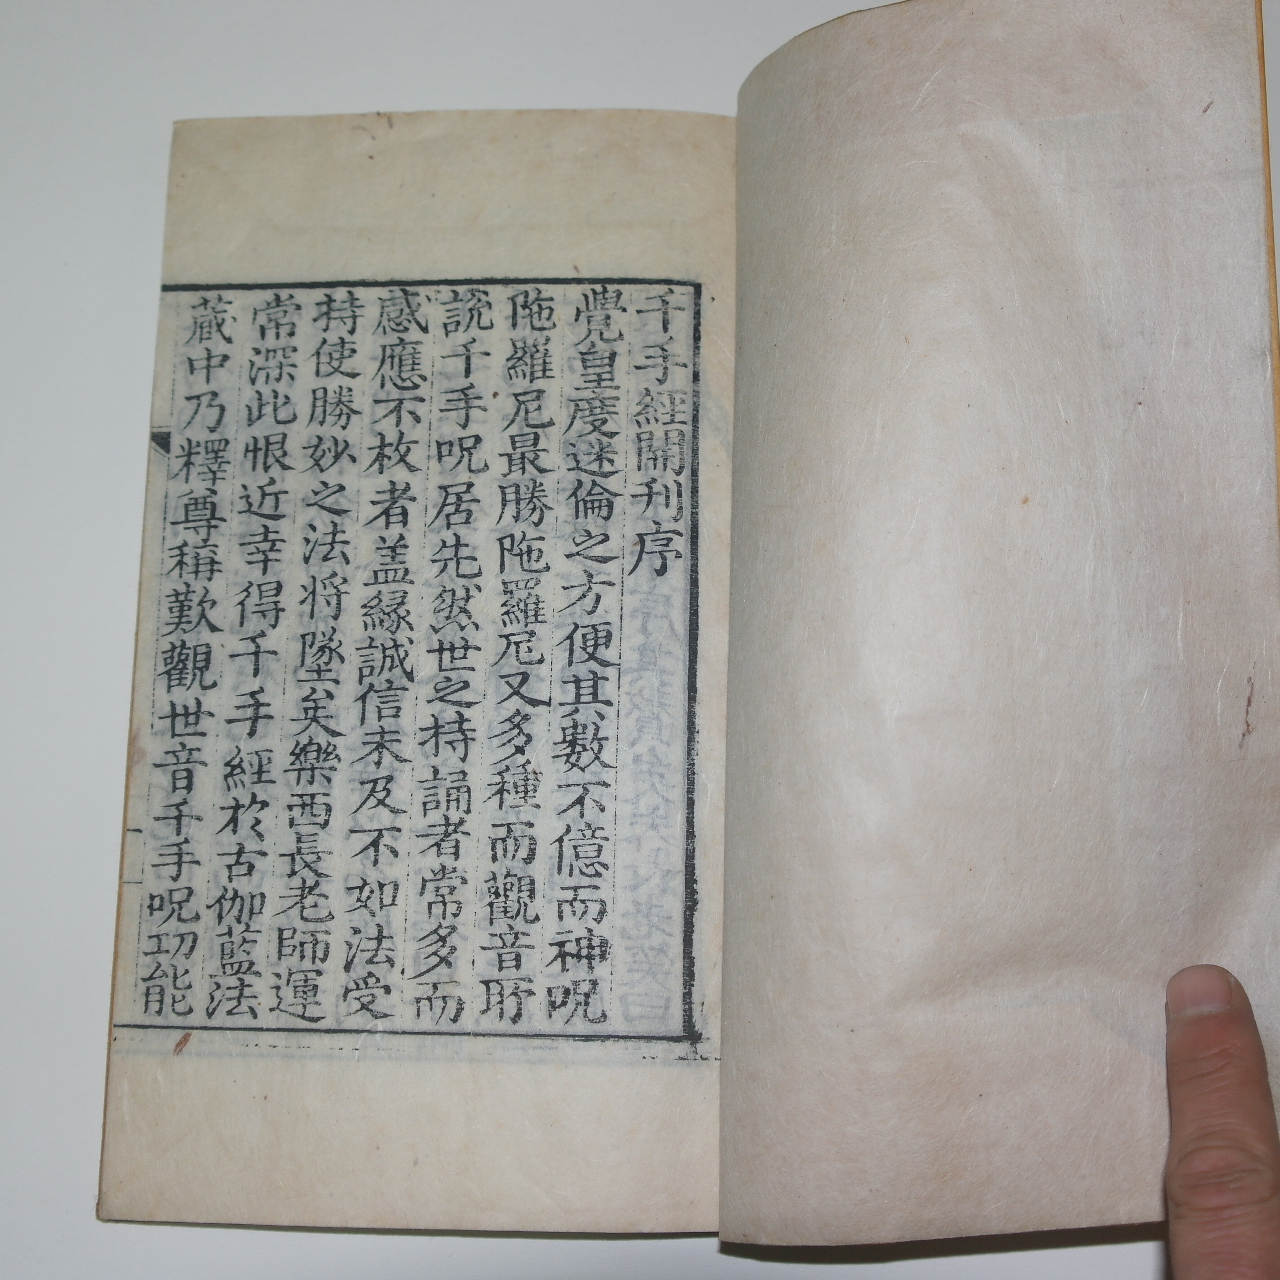 千手經開刊序
覺皇度迷倫之方便其數不億而神呪
陁羅尼最勝陁羅尼又多種而觀音所
說千手呪居先然世之持誦者常多而
感應不枚者盖緣誠信未及不如法受
持使勝妙之法将墜矣樂西長老師運
常深此恨近幸得千手經於古伽藍法
藏中乃釋尊稱歎觀世音千手呪功能